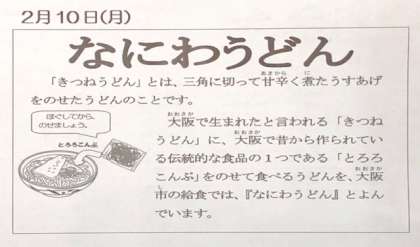 2月10日(月)
なにわうどん
「きつねうどん」とは、三角に切って甘辛く煮たうすあげ
をのせたうどんのことです。
ほぐしてから、
のせましょう。
とろろこんぶ
大阪で生まれたと言われる「きつね
うどん」に、大阪で昔から作られてい
る伝統的な食品の1つである「とろろ
こんぶ」をのせて食べるうどんを、大阪
市の給食では、『なにわうどん』とよん
でいます。